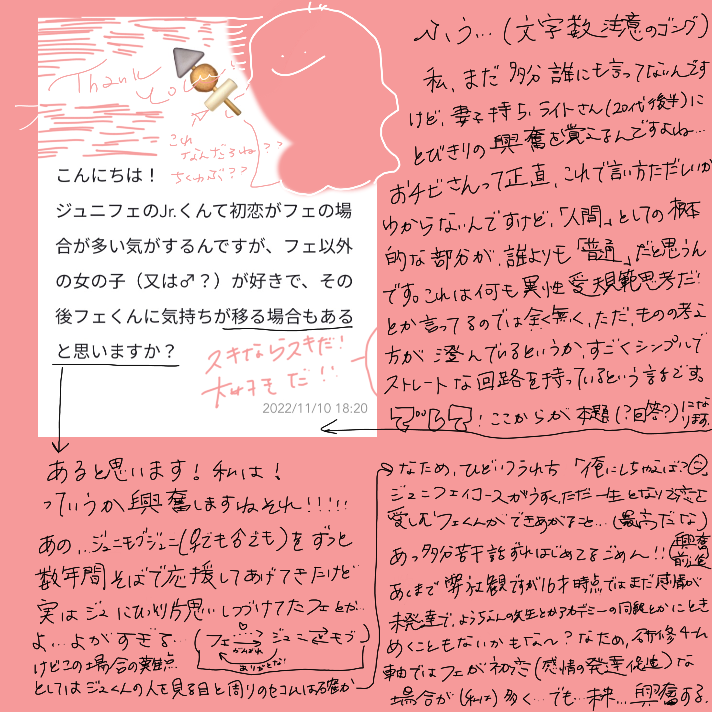 Thank you!
これ
なんだろね??
ちくわぶ??
こんにちは!
ジュニフェのJr.くんて初恋がフェの場
合が多い気がするんですが、フェ以外
の女の子(又は♂?)が好きで、その
後フェくんに気持ちが移る場合もある
と思いますか?
スキならスキだ!
大好きだ!!
2022/11/10 18:20
あると思います!私は!
っていうか興奮しますねそれ!!!!!
あの…ジュニモブジュニ(♀でも♂でも)をずっと
数年間そばで応援してあげてきたけど
実はジュにひっそり片思いしつづけてたフェとか…
よ…よがすぎる…
フェ ジュニ モブ
がんばれ
ありがとな!
けどこの場合の難点
としてはジュくんの人を見る目と周りのセコムは確か
ふぅ…(文字数注意のゴング)
私、まだ多分誰にも言ってないんです
けど、妻子持ちライトさん(20代後半)に
とびきりの興奮を覚えるんですよね…
おチビさんって正直、これで言い方ただしいか
わからないんですけど、「人間」としての根本
的な部分が、誰よりも「普通」だと思うん
です。これは何も異性愛規範思考だ!
とか言ってるのでは全く無く、ただ、ものの考え
方が澄んでいるというか、すごくシンプルで
ストレートな回路を持っているという話です。
!ここからが本題(?回答?)になります。
なため、ひどいフラれ方「俺にしちゃえば?」
ジュニフェイコースがうすく、ただ一生となりで恋を
愛しむフェくんができあがること…(最高だな)
あっ多分若干話ずれはじめてるごめん!!(興奮前後
あくまで
ですが16才時点ではまだ感情が
未発達で、ようちえんの先生とかアカデミーの同級とかにときめ
くこともないかもな〜?なため、研修4年
軸ではフェが初恋(感情の発達促進)な
場合が(私は)多く…でも…未来…興奮する。